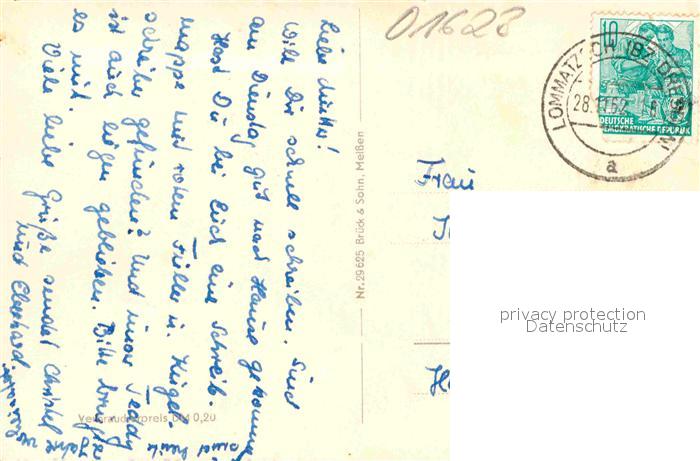 01628
Liebe Mutter!
Will Dir schnell schreiben. Sind
am Dienstag gut nach Hause gekommen
Hast Du bei Euch eine Schreib-
mappe mit rotem Füller u. Kugel-
schreiber gefunden? Und unser Teddy
ist auch liegen geblieben. Bitte bringe
es mit.
Viele liebe Grüße sendet Christel
und Eberhard.
Verbraucherpreis DM 0,20
Nr. 29625 Brück & Sohn, Meißen
10
DEUTSCHE
DEMOKRATISCHE REPUBLIK
LOMMATZSCH
a
Frau
privacy protection
Datenschutz